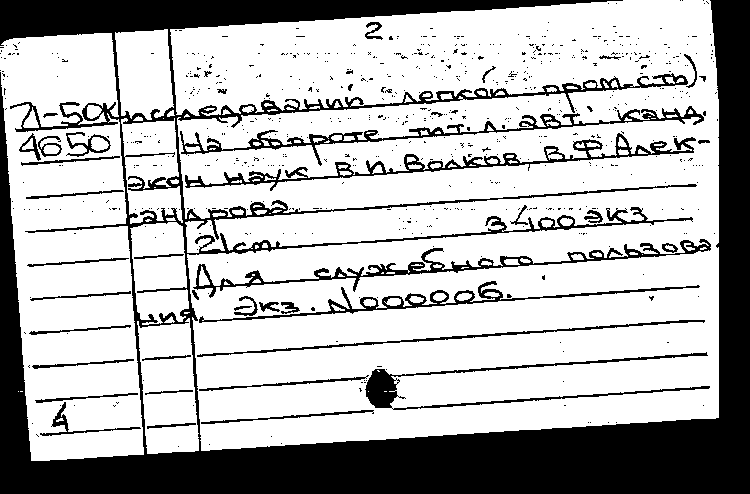 2.
71-50К исследований легкой пром-сть).
4650 На обороте тит. л. авт.: канд.
экон. наук В.П. Волков, В.Ф. Алек-
сандрова.
21 см. 3400 экз.
Для служебного пользова-
ния. Экз. N000006.
4